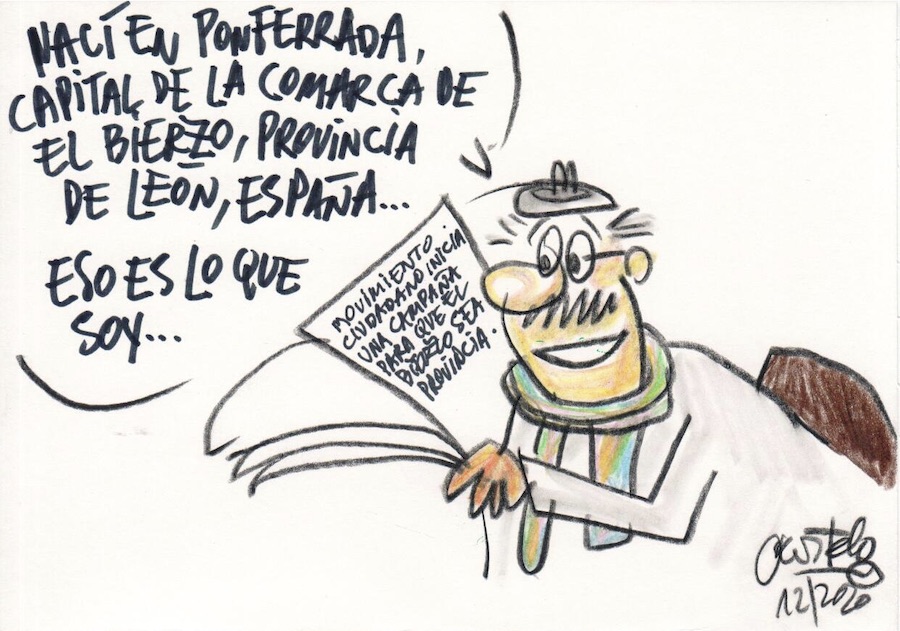 NACÍ EN PONFERRADA,
CAPITAL DE LA COMARCA DE
EL BIERZO, PROVINCIA
DE LEÓN, ESPAÑA...
ESO ES LO QUE
SOY...
MOVIMIENTO
CIUDADANO INICIA
UNA CAMPAÑA
PARA QUE EL
BIERZO SEA
PROVINCIA.
12/2020